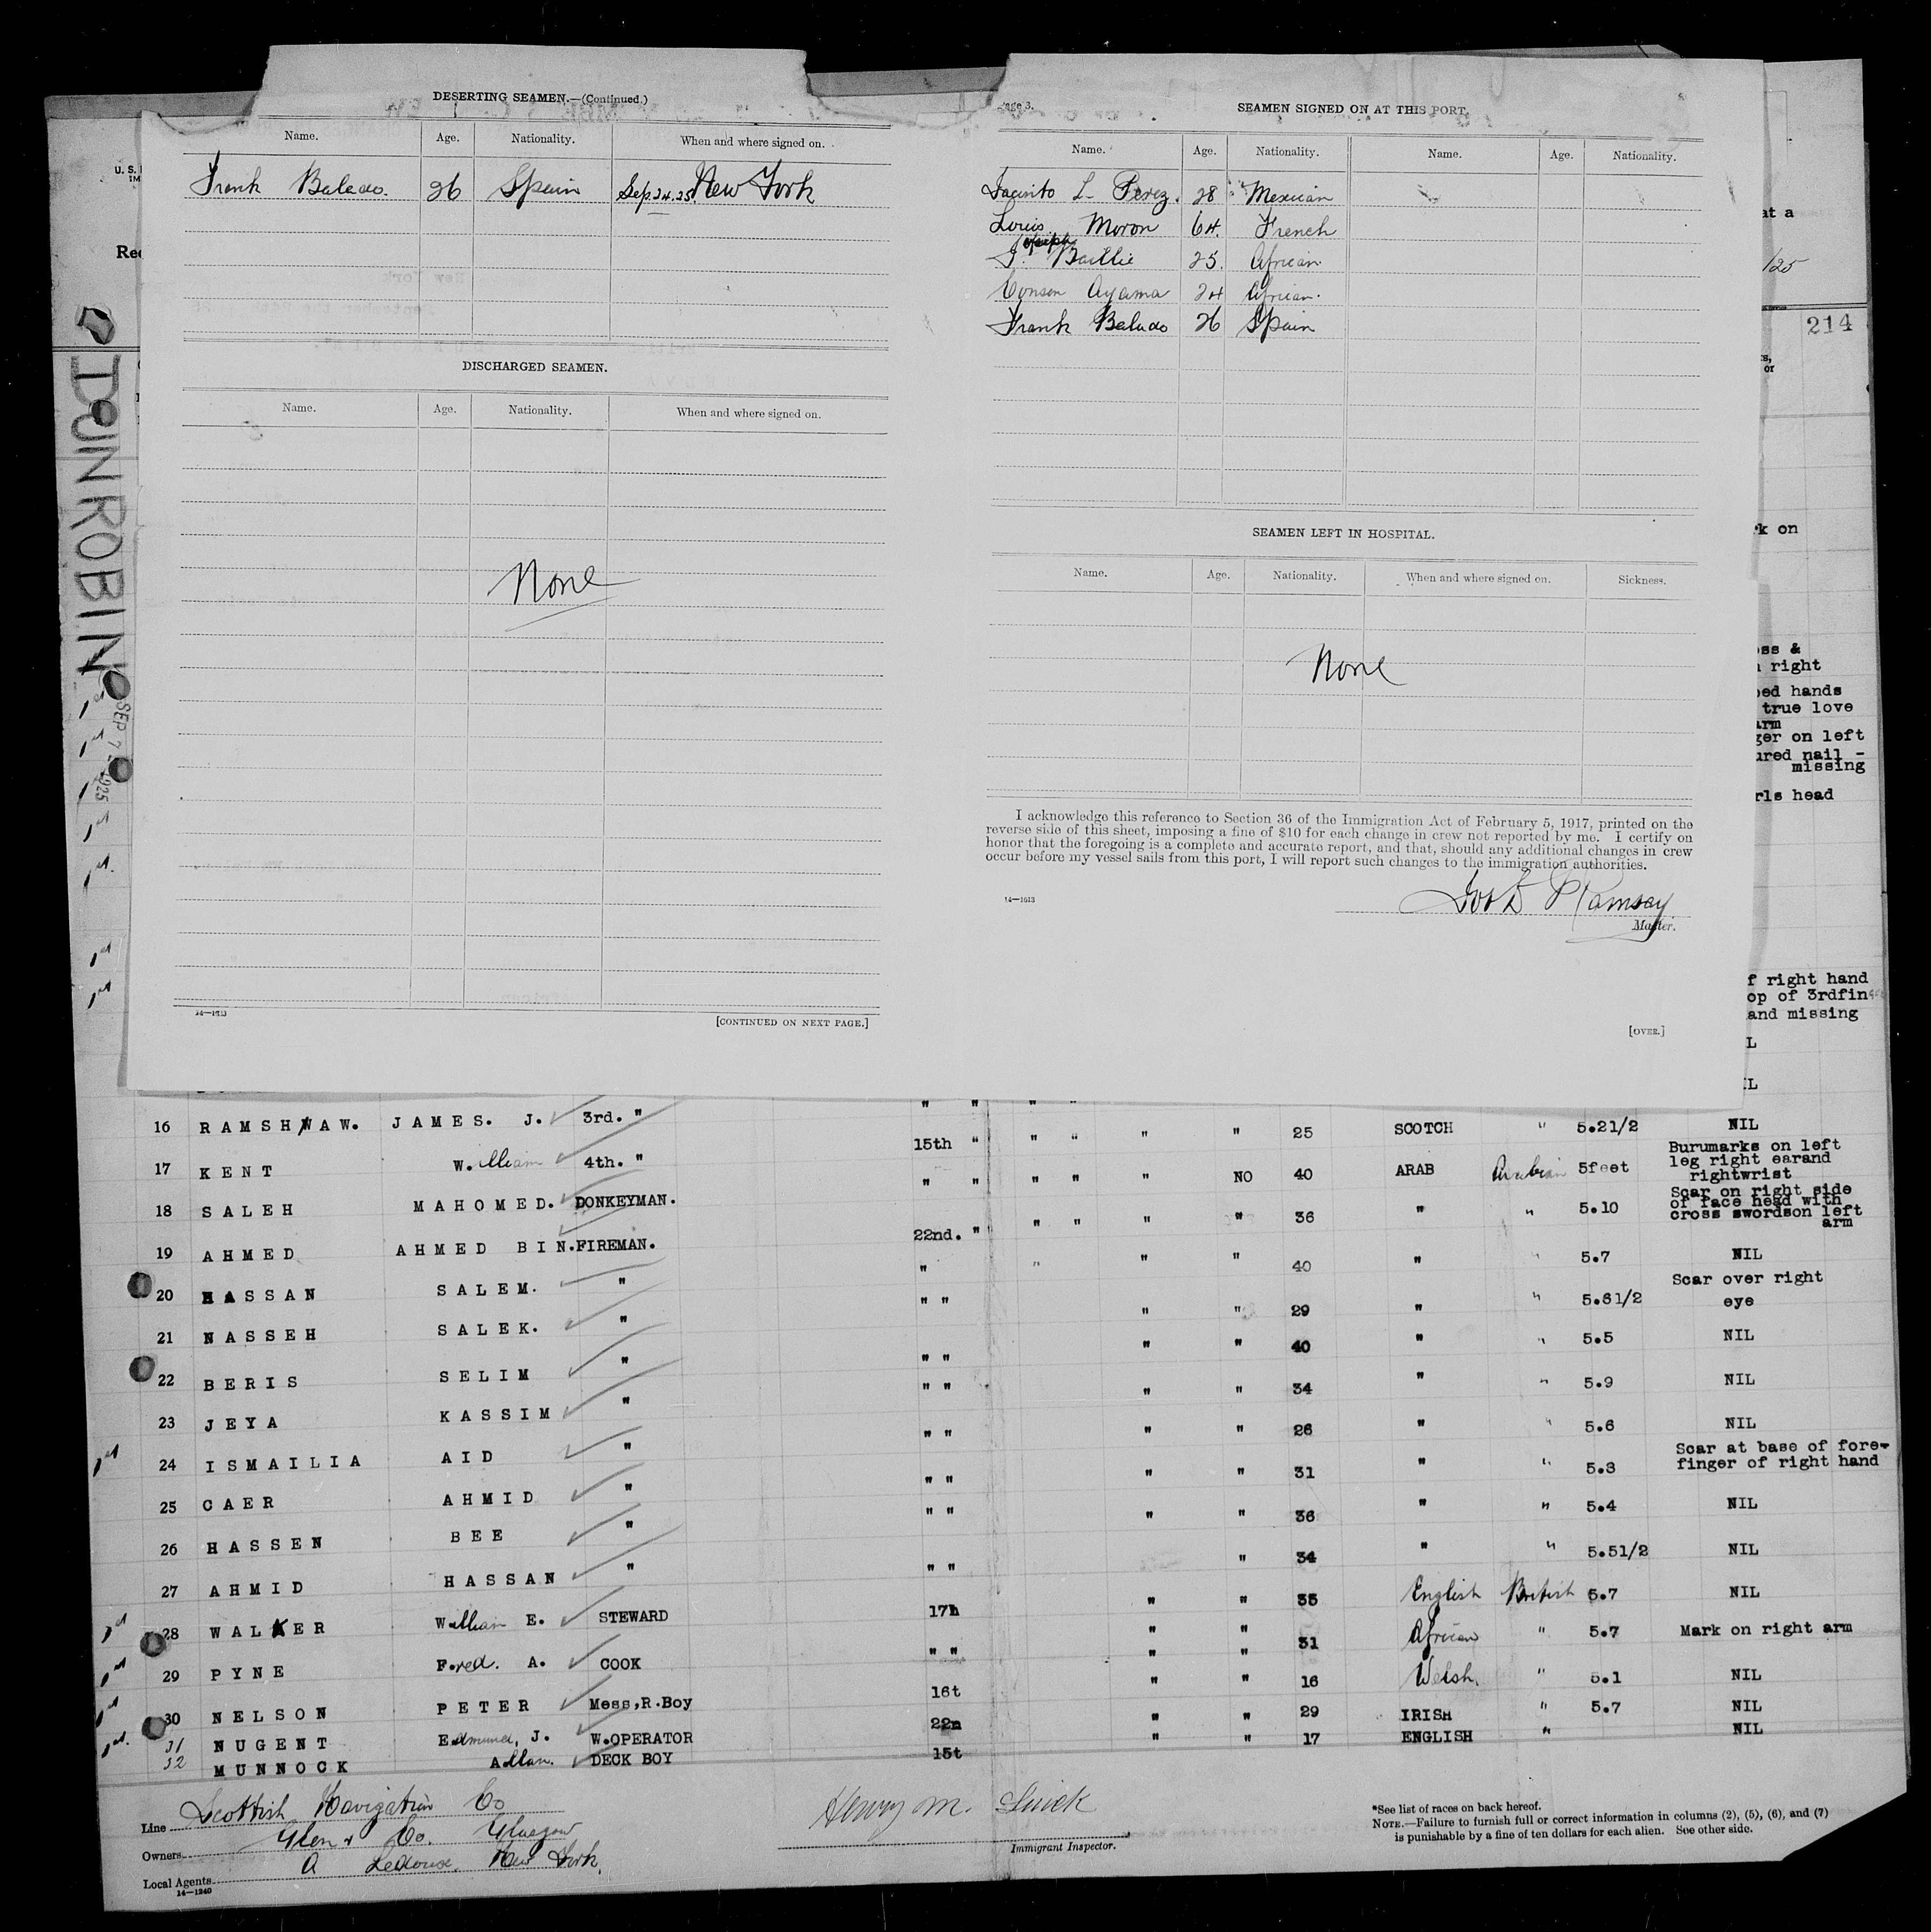 DESERTING SEAMEN.—(Continued.)
Name. Age. Nationality. When and where signed on.
Frank Balado. 26 Spain Sep. 24. 25. New York
DISCHARGED SEAMEN.
Name. Age. Nationality. When and where signed on.
None
14—1613
[CONTINUED ON NEXT PAGE.]
Page 3.
SEAMEN SIGNED ON AT THIS PORT.
Name. Age. Nationality. Name. Age. Nationality.
Jacinto L. Perez. 28 Mexican
Louis Moron 64. French
Joseph
J. Baillie 25. African
Conson Ayama 24 African.
Frank Balado 26 Spain
SEAMEN LEFT IN HOSPITAL.
Name. Age. Nationality. When and where signed on. Sickness.
None
I acknowledge this reference to Section 36 of the Immigration Act of February 5, 1917, printed on the
reverse side of this sheet, imposing a fine of $10 for each change in crew not reported by me. I certify on
honor that the foregoing is a complete and accurate report, and that, should any additional changes in crew
occur before my vessel sails from this port, I will report such changes to the immigration authorities.
14—1613
Ramsay
Master.
[OVER.]
U. S.
DUNROBIN
SEP 7 1925
at a
/25
214
or
right
hands
true love
arm
on left
nail -
missing
head
right hand
of 3rdfin
and missing
16 RAMSHAW. JAMES. J. 3rd. " " " " " 25 SCOTCH " 5.21/2 NIL
17 KENT William 4th. " 15th " " " " " NO 40 ARAB Arabian 5feet Burumarks on left
leg right earand
rightwrist
18 SALEH MAHOMED. DONKEYMAN. " " " " " " 36 " " 5.10 Scar on right side
of face head with
cross swordson left
arm
19 AHMED AHMED BIN. FIREMAN. 22nd. " " " " 40 " " 5.7 NIL
20 HASSAN SALEM. " " " " 29 " " 5.61/2 Scar over right
eye
21 NASSEH SALEK. " " " " " 40 " " 5.5 NIL
22 BERIS SELIM " " " " " 34 " " 5.9 NIL
23 JEYA KASSIM " " " " " 26 " " 5.6 NIL
24 ISMAILIA AID " " " " " 31 " " 5.3 Scar at base of fore-
finger of right hand
25 CAER AHMID " " " " " 36 " " 5.4 NIL
26 HASSEN BEE " " " " 34 " " 5.51/2 NIL
27 AHMID HASSAN " " " " " 35 English British 5.7 NIL
28 WALKER William E. STEWARD 17h " " 31 African " 5.7 Mark on right arm
29 PYNE Fred. A. COOK " " " " 16 Welsh. " 5.1 NIL
30 NELSON PETER Mess,R.Boy 16t " " 29 IRISH " 5.7 NIL
31 NUGENT Edmund, J. W.OPERATOR 22n " " 17 ENGLISH " NIL
32 MUNNOCK Allan. DECK BOY 15t
Line Scottish Navigation Co
Owners Glen & Co. Glasgow
Local Agents A Ledoux. New York.
14—1240
Henry M.
Immigrant Inspector.
*See list of races on back hereof.
NOTE.—Failure to furnish full or correct information in columns (2), (5), (6), and (7)
is punishable by a fine of ten dollars for each alien. See other side.